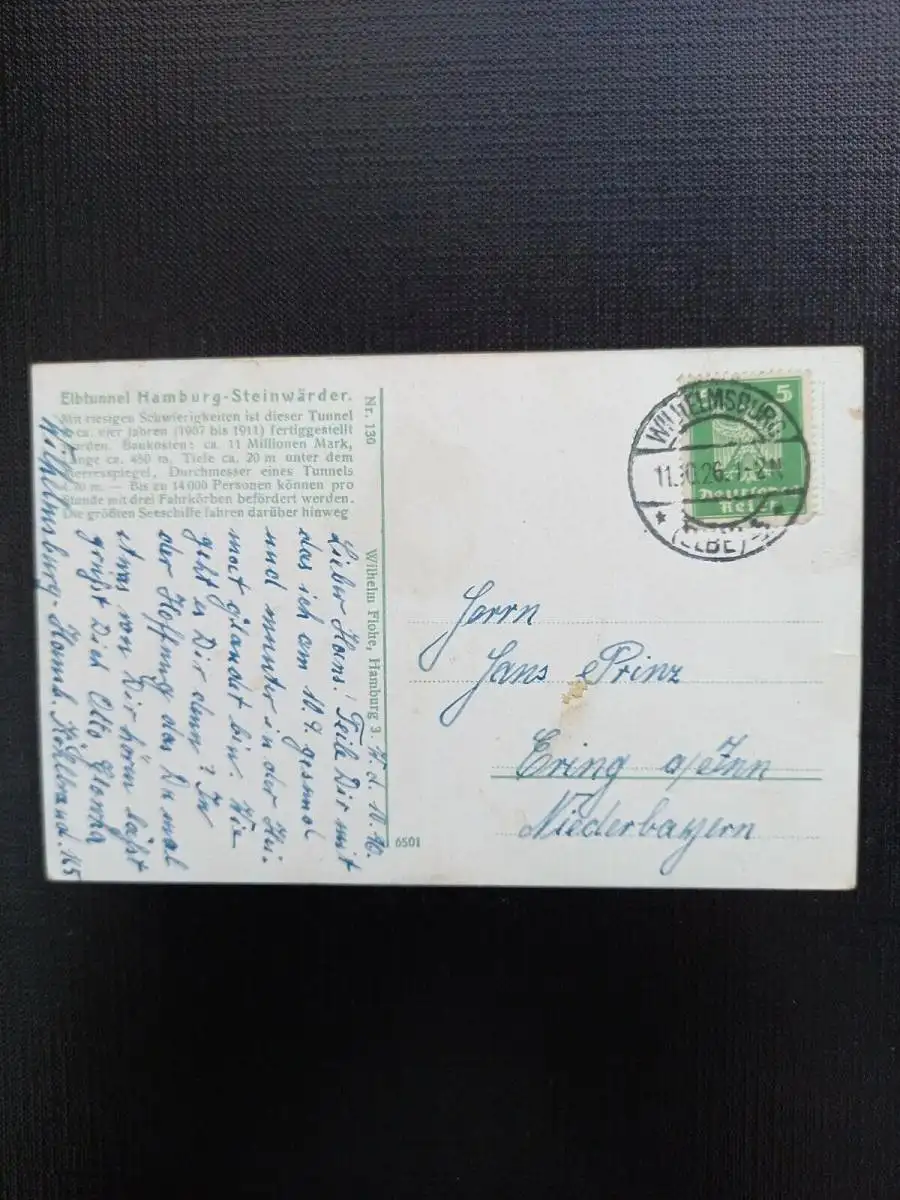 Elbtunnel Hamburg-Steinwärder.
Mit riesigen Schwierigkeiten ist dieser Tunnel
in ca. vier Jahren (1907 bis 1911) fertiggestellt
worden. Baukosten: ca. 11 Millionen Mark,
Länge ca. 450 m, Tiefe ca. 20 m unter dem
Meeresspiegel, Durchmesser eines Tunnels
4.70 m. — Bis zu 14000 Personen können pro
Stunde mit drei Fahrkörben befördert werden.
Die größten Seeschiffe fahren darüber hinweg
Nr. 130
Wilhelm Flohe, Hamburg 3.
6501
d. 10. 10.
Lieber Hans! Teile Dir mit
das ich am 10 9. gesund
und munter in der Hei-
mat gelandet bin. Wie
geht es Dir denn? In
der Hoffnung das Du mal
etwas von Dir hören läßt
grüßt Dich Otto
Wilhelmsburg-Hamb. Köhlbrand. 165
5
Deutsches
Reich
WILHELMSBURG
11.10.26. 1-2 N
* (ELBE) *
Herrn
Hans Prinz
Ering a/Inn
Niederbayern